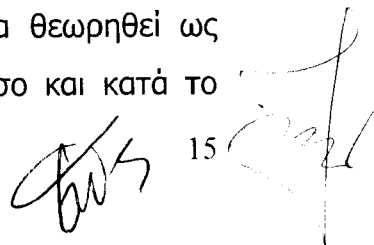 α θεωρηθεί ως
σο και κατά το
15